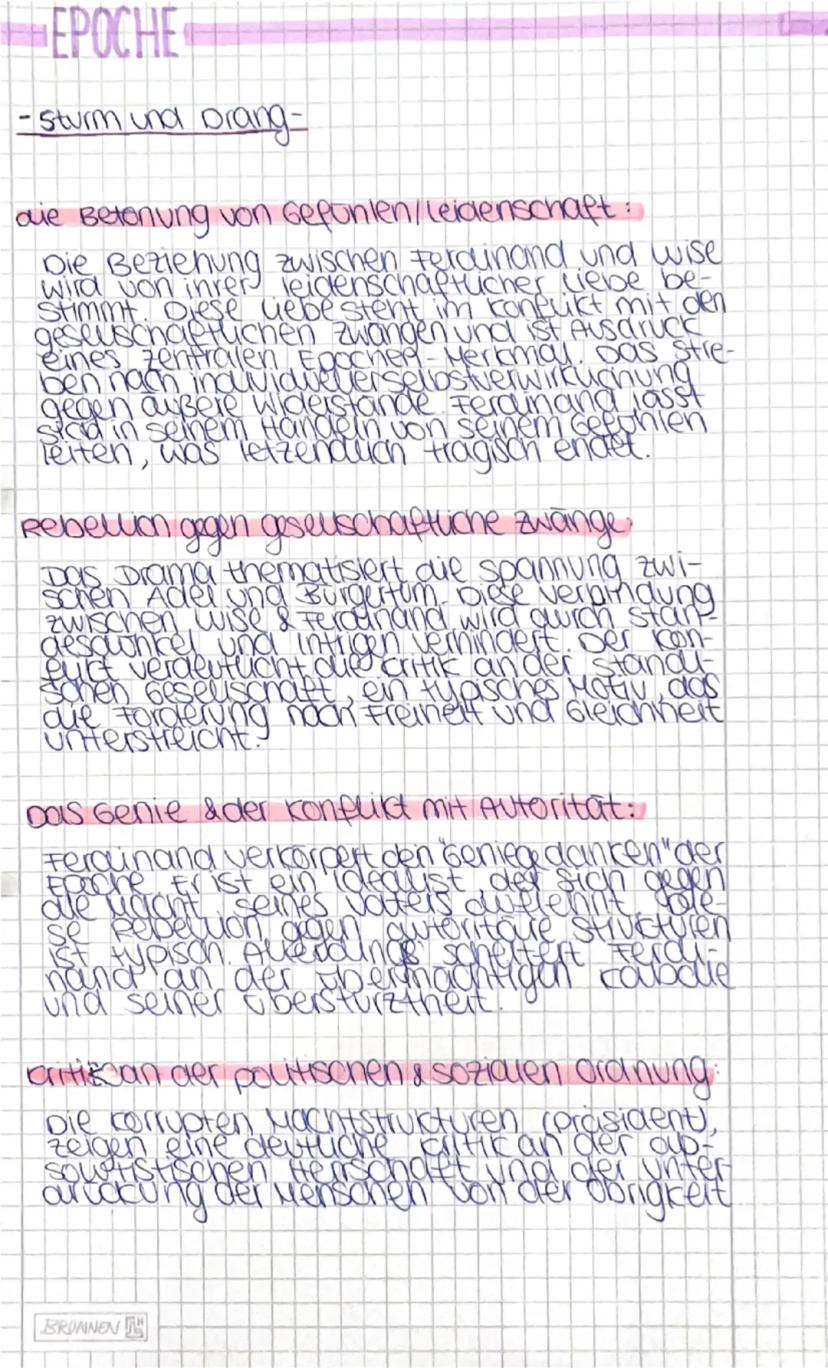 EPOCHE
- Sturm und Drang -
die Betonung von Gefühlen/Leidenschaft:
Die Beziehung zwischen Ferdinand und Luise
wird von ihrer leidenschaftlicher Liebe be-
stimmt. Diese Liebe steht im Konflikt mit den
gesellschaftlichen Zwängen und ist Ausdruck
eines zentralen Epochen-Merkmal. Das Stre-
ben nach individueller Selbstverwirklichung
gegen äußere Widerstände. Ferdinand lässt
sich in seinem Handeln von seinem Gefühlen
leiten, was letzendlich tragisch endet.
Rebellion gegen gesellschaftliche Zwänge:
Das Drama thematisiert die Spannung zwi-
schen Adel und Bürgertum. Diese Verbindung
zwischen Luise & Ferdinand wird durch Stan-
desdünkel und Intrigen verhindert. Der Kon-
flikt verdeutlicht die Critik an der Ständi-
schen Gesellschaft, ein typisches Motiv, das
die Forderung nach Freiheit und Gleichheit
unterstreicht.
Das Genie & der Konflikt mit Autorität:
Ferdinand verkörpert den "Geniegedanken" der
Epoche. Er ist ein Idealist, der sich gegen
die Macht seines Vaters auflehnt. Die-
se Rebellion gegen autoritäre Structuren
ist typisch. Allerdings scheitert Ferdi-
nand an der übermächtigen Cabale
und seiner Überstürztheit.
Critik an der politischen & sozialen Ordnung:
Die korrupten Machtstrukturen (Präsident),
zeigen eine deutliche Critik an der abp-
solutistischen Herrschaft und der Unter
drückung der Menschen von der Obrigkeit
BRUNNEN